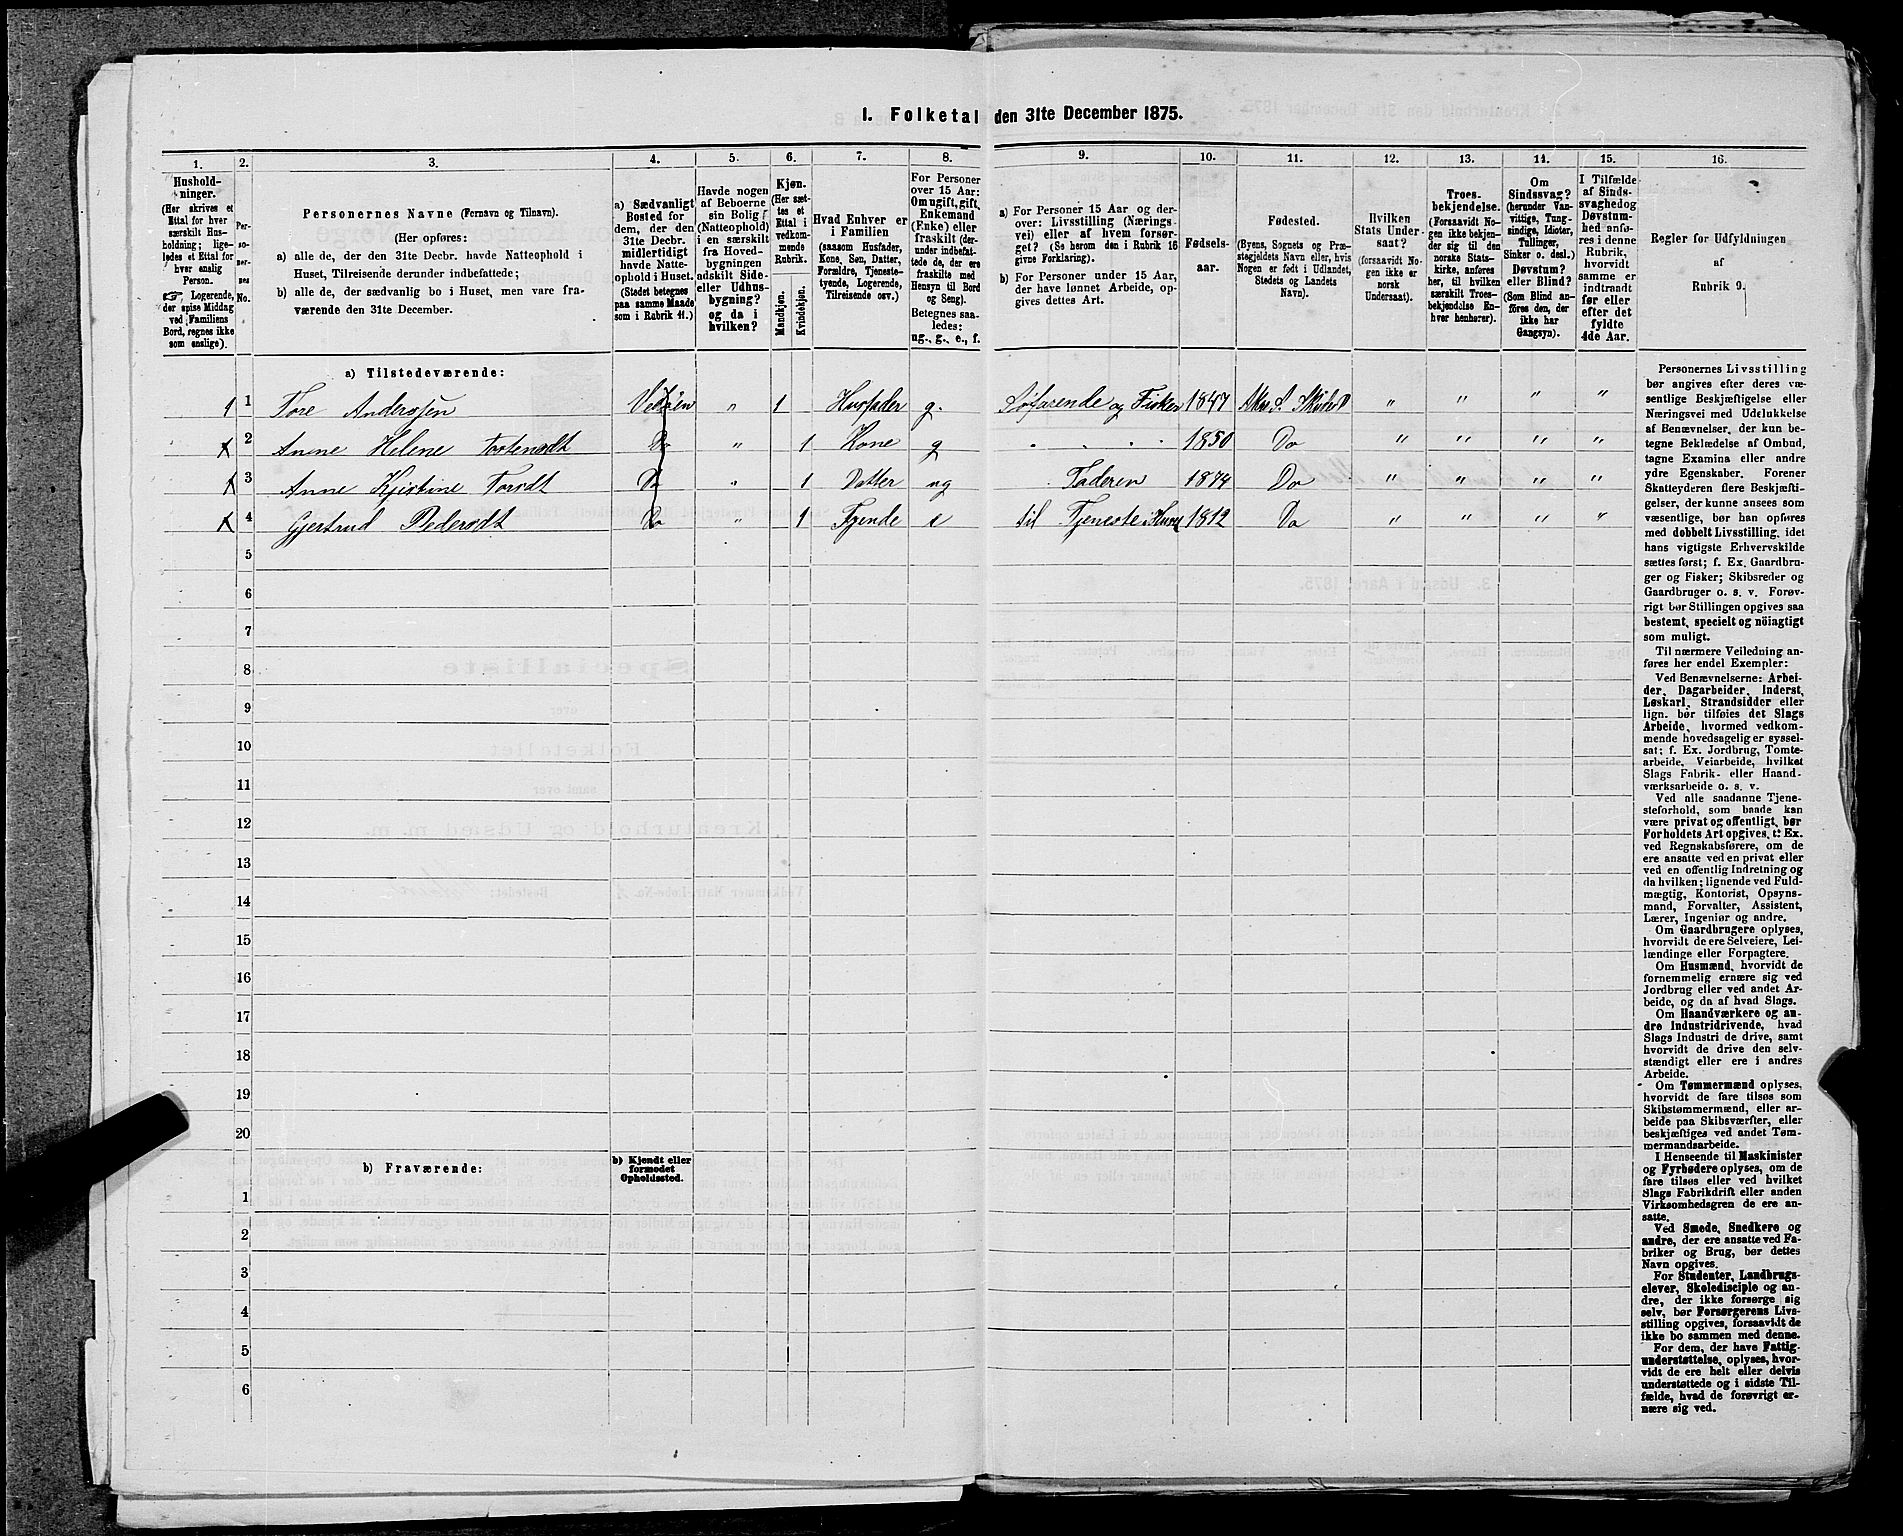 1. Folketal den 31te December 1875.
1.
2.
3.
4.
5.
6.
7.
8.
9.
10.
11.
12.
13.
14.
15.
16.
Hushold-
ninger.
(Her skrives et
Ettal for hver
særskilt Hus-
holdning; lige-
ledes et Ettal for
hver enslig
Person.
☞ Logerende,
der spise Middag
ved Familiens
Bord, regnes ikke
som enslige).
Per-
so-
ner-
nes
No.
Personernes Navne (Fornavn og Tilnavn).
(Her opføres:
a) alle de, der den 31te Decbr. havde Natteophold i
Huset, Tilreisende derunder indbefattede;
b) alle de, der sædvanlig bo i Huset, men vare fra-
værende den 31te December.
a) Sædvanligt
Bosted for
dem, der den
31te Decbr.
midlertidigt
havde Natte-
ophold i Huset.
(Stedet betegnes
paa samme Maade
som i Rubrik 11.)
Havde nogen
af Beboerne
sin Bolig
(Natteophold)
i en særskilt
fra Hoved-
bygningen
adskilt Side-
eller Udhus-
bygning?
og da i
hvilken?
Kjøn.
(Her sæt-
tes et
Ettal i
vedkom-
mende
Rubrik.
Mandkjøn.
Kvindekjøn.
Hvad Enhver er
i Familien
(saasom Husfader,
Kone, Søn, Datter,
Forældre, Tjeneste-
tyende, Logerende,
Tilreisende osv.)
For Personer
over 15 Aar:
Om ugift, gift,
Enkemand
(Enke) eller
fraskilt (der-
under indbefat-
tede de, der ere
fraskilte med
Hensyn til Bord
og Seng).
Betegnes saa-
ledes:
ug., g., e., f.
a) For Personer 15 Aar og der-
over: Livsstilling (Nærings-
vei) eller af hvem forsør-
get? (Se herom den i Rubrik 16
givne Forklaring).
b) For Personer under 15 Aar,
der have lønnet Arbeide, op-
gives dettes Art.
Fødsels-
aar.
Fødested.
(Byens, Sognets og Præ-
stegjeldets Navn eller, hvis
Nogen er født i Udlandet,
Stedets og Landets
Navn).
Hvilken
Stats Under-
saat?
(forsaavidt No-
gen ikke er
norsk
Undersaat).
Troes-
bekjendelse.
(Forsaavidt No-
gen ikke bekjen-
der sig til den
norske Stats-
kirke, anføres
her, til hvilken
særskilt Troes-
bekjendelse En-
hver henhører).
Om
Sindssvag?
(herunder Van-
vittige, Tung-
sindige, Idioter,
Tullinger,
Sinker o. desl.)
Døvstum?
eller Blind?
(Som Blind an-
føres den, der
ikke har
Gangsyn).
I Tilfælde
af Sinds-
svaghed og
Døvstum-
hed anfø-
res i denne
Rubrik,
hvorvidt
samme er
indtraadt
før eller
efter det
fyldte
4de Aar.
Regler for Udfyldningen
af
Rubrik 9.
a) Tilstedeværende:
1 1 Tore Anderssen " 1 Husfader g. Søfarende og Fisker 1847 " " " "
2 Anne Helene Torstensdt Do " 1 Kone g 1850 Do " " " "
3 Anne Kjistine Torsdt Do " 1 Datter ug Faderen 1874 Do " " " "
4 Gjertrud Pedersdt Do " 1 Tyende e til Tjeneste i Huset 1812 Do " " " "
5
6
7
8
9
10
11
12
13
14
15
16
17
18
19
20
b) Fraværende:
b) Kjendt eller
formodet
Opholdssted.
1
2
3
4
5
6
Personernes Livsstilling
bør angives efter deres væ-
sentlige Beskjæftigelse eller
Næringsvei med Udelukkelse
af Benævnelser, der kun be-
tegne Beklædelse af Ombud,
tagne Examina eller andre
ydre Egenskaber. Forener
Skatteyderen flere Beskjæfti-
gelser, der kunne ansees som
væsentlige, bør han opføres
med dobbelt Livsstilling, idet
hans vigtigste Erhvervskilde
sættes først; f. Ex. Gaardbru-
ger og Fisker; Skibsreder og
Gaardbruger o. s. v. Forøv-
rigt bør Stillingen opgives saa
bestemt, specielt og nöiagtigt
som muligt.
Til nærmere Veiledning an-
føres her endel Exempler:
Ved Benævnelserne: Arbei-
der, Dagarbeider, Inderst,
Løskarl, Strandsidder eller
lign. bør tilføies det Slags
Arbeide, hvormed vedkom-
mende hovedsagelig er syssel-
sat; f. Ex. Jordbrug, Tomte-
arbeide, Veiarbeide, hvilket
Slags Fabrik- eller Haand-
værksarbeide o. s. v.
Ved alle saadanne Tjene-
steforhold, som baade kan
være privat og offentligt, bør
Forholdets Art opgives, t: Ex.
ved Regnskabsførere, om de
ere ansatte ved en privat eller
ved en offentlig Indretning og
da hvilken; lignende ved Fuld-
mægtig, Kontorist, Opsyns-
mand, Forvalter, Assistent,
Lærer, Ingeniør og andre.
Om Gaardbrugere oplyses,
hvorvidt de ere Selveiere, Lei-
lændinge eller Forpagtere.
Om Husmænd, hvorvidt de
fornemmelig ernære sig ved
Jordbrug eller ved andet Ar-
beide, og da af hvad Slags.
Om Haandværkere og an-
dre Industridrivende, hvad
Slags Industri de drive, samt
hvorvidt de drive den selv-
stændigt eller ere i andres
Arbeide.
Om Tømmermænd oplyses,
hvorvidt de fare tilsøs som
Skibstømmermænd, eller ar-
beide paa Skibsværfter, eller
beskjæftiges ved andet Tøm-
mermandsarbeide.
I Henseende til Maskinister
og Fyrbødere oplyses, om de
fare tilsøs eller ved hvilket
Slags Fabrikdrift eller anden
Virksomhedsgren de ere an-
satte.
Ved Smede, Snedkere og
andre, der ere ansatte ved Fa-
briker og Brug, bør dettes
Navn opgives.
For Studenter, Landbrugs-
elever, Skoledisciple og an-
dre, der ikke forsørge sig
selv, bør Forsørgerens Livs-
stilling opgives, forsaavidt de
ikke bo sammen med denne.
For dem, der have Fattig-
understøttelse, oplyses, hvor-
vidt de ere helt eller delvis
understøttede og i sidste Til-
fælde, hvad de forøvrigt er-
nære sig ved.